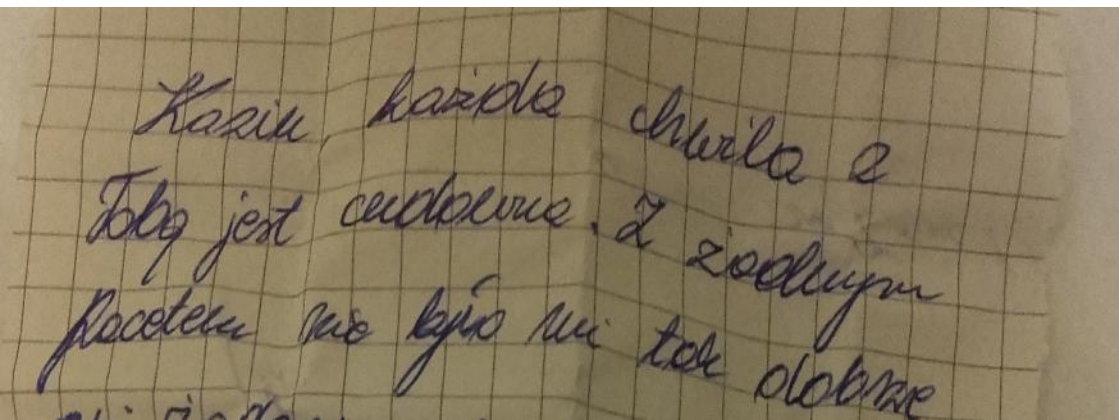 Kaziu, każda chwila z
Tobą jest cudowna. Z żadnym
facetem nie było mi tak dobrze